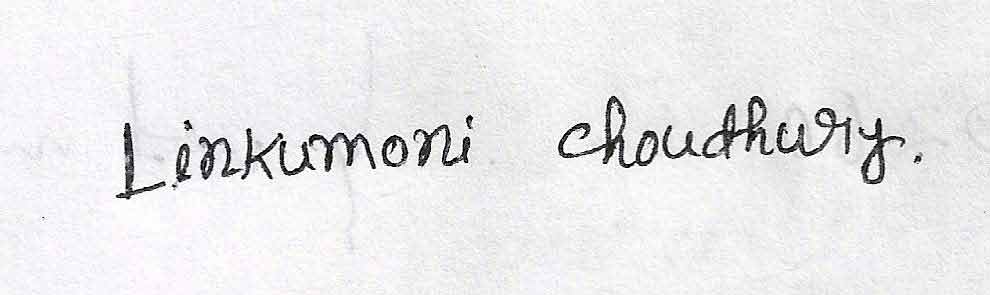 Linkumoni choudhury.